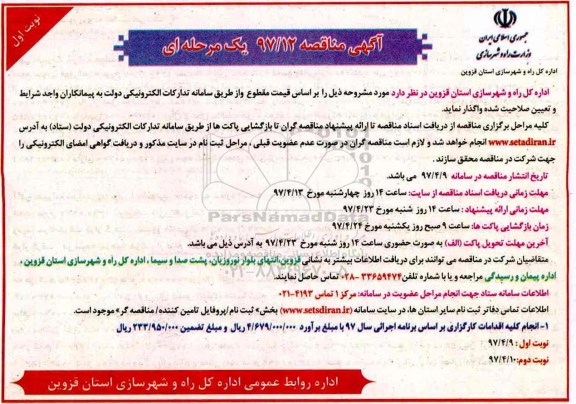 نوبت اول
جمهوری اسلامی ایران
وزارت راه و شهرسازی
اداره کل راه و شهرسازی استان قزوین
آگهی مناقصه ۹۷/۱۲ یک مرحله ای
اداره کل راه و شهرسازی استان قزوین در نظر دارد مورد مشروحه ذیل را بر اساس قیمت مقطوع واز طریق سامانه تدارکات الکترونیکی دولت به پیمانکاران واجد شرایط
و تعیین صلاحیت شده واگذار نماید.
کلیه مراحل برگزاری مناقصه از دریافت اسناد مناقصه تا ارائه پیشنهاد مناقصه گران تا بازگشایی پاکت ها از طریق سامانه تدارکات الکترونیکی دولت (ستاد) به آدرس
www.setadiran.ir انجام خواهد شد و لازم است مناقصه گران در صورت عدم عضویت قبلی ، مراحل ثبت نام در سایت مذکور و دریافت گواهی امضای الکترونیکی را
جهت شرکت در مناقصه محقق سازند.
تاریخ انتشار مناقصه در سامانه ۹۷/۴/۹ می باشد.
مهلت زمانی دریافت اسناد مناقصه از سایت: ساعت ۱۴ روز چهارشنبه مورخ ۹۷/۴/۱۳
مهلت زمانی ارائه پیشنهاد : ساعت ۱۴ روز شنبه مورخ ۹۷/۴/۲۳
زمان بازگشایی پاکت ها: ساعت ۹ صبح روز یکشنبه مورخ ۹۷/۴/۲۴
آخرین مهلت تحویل پاکت (الف) به صورت حضوری ساعت ۱۴ روز شنبه مورخ ۹۷/۴/۲۳ به آدرس ذیل می باشد.
متقاضیان شرکت در مناقصه می توانند برای دریافت اطلاعات بیشتر به نشانی قزوین،انتهای بلوار نوروزیان، پشت صدا و سیما ، اداره کل راه و شهرسازی استان قزوین ،
اداره پیمان و رسیدگی مراجعه و یا با شماره تلفن ۳۳۶۵۹۴۷۴-۰۲۸ تماس حاصل نمایند.
اطلاعات سامانه ستاد جهت انجام مراحل عضویت در سامانه: مرکز ۱ تماس ۴۱۹۳-۰۲۱
اطلاعات تماس دفاتر ثبت نام سایر استان ها، در سایت سامانه (www.setsdiran.ir) بخش» ثبت نام/پروفایل تامین کننده/ مناقصه گر» موجود است.
۱- انجام کلیه اقدامات کارگزاری بر اساس برنامه اجرائی سال ۹۷ با مبلغ برآورد ۴/۶۷۹/۰۰۰/۰۰۰ ریال و مبلغ تضمین ۲۳۳/۹۵۰/۰۰۰ ریال
نوبت اول : ۹۷/۴/۹
نوبت دوم: ۹۷/۴/۱۰
اداره روابط عمومی اداره کل راه و شهرسازی استان قزوین
ParsNamadData